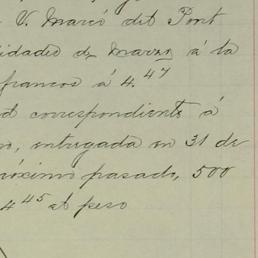 V. Marcó del Pont
idades de Marzo á la
francos á 4.47
d correspondiente á
o, entregada en 31 de
róximo pasado, 500
4 45 al peso